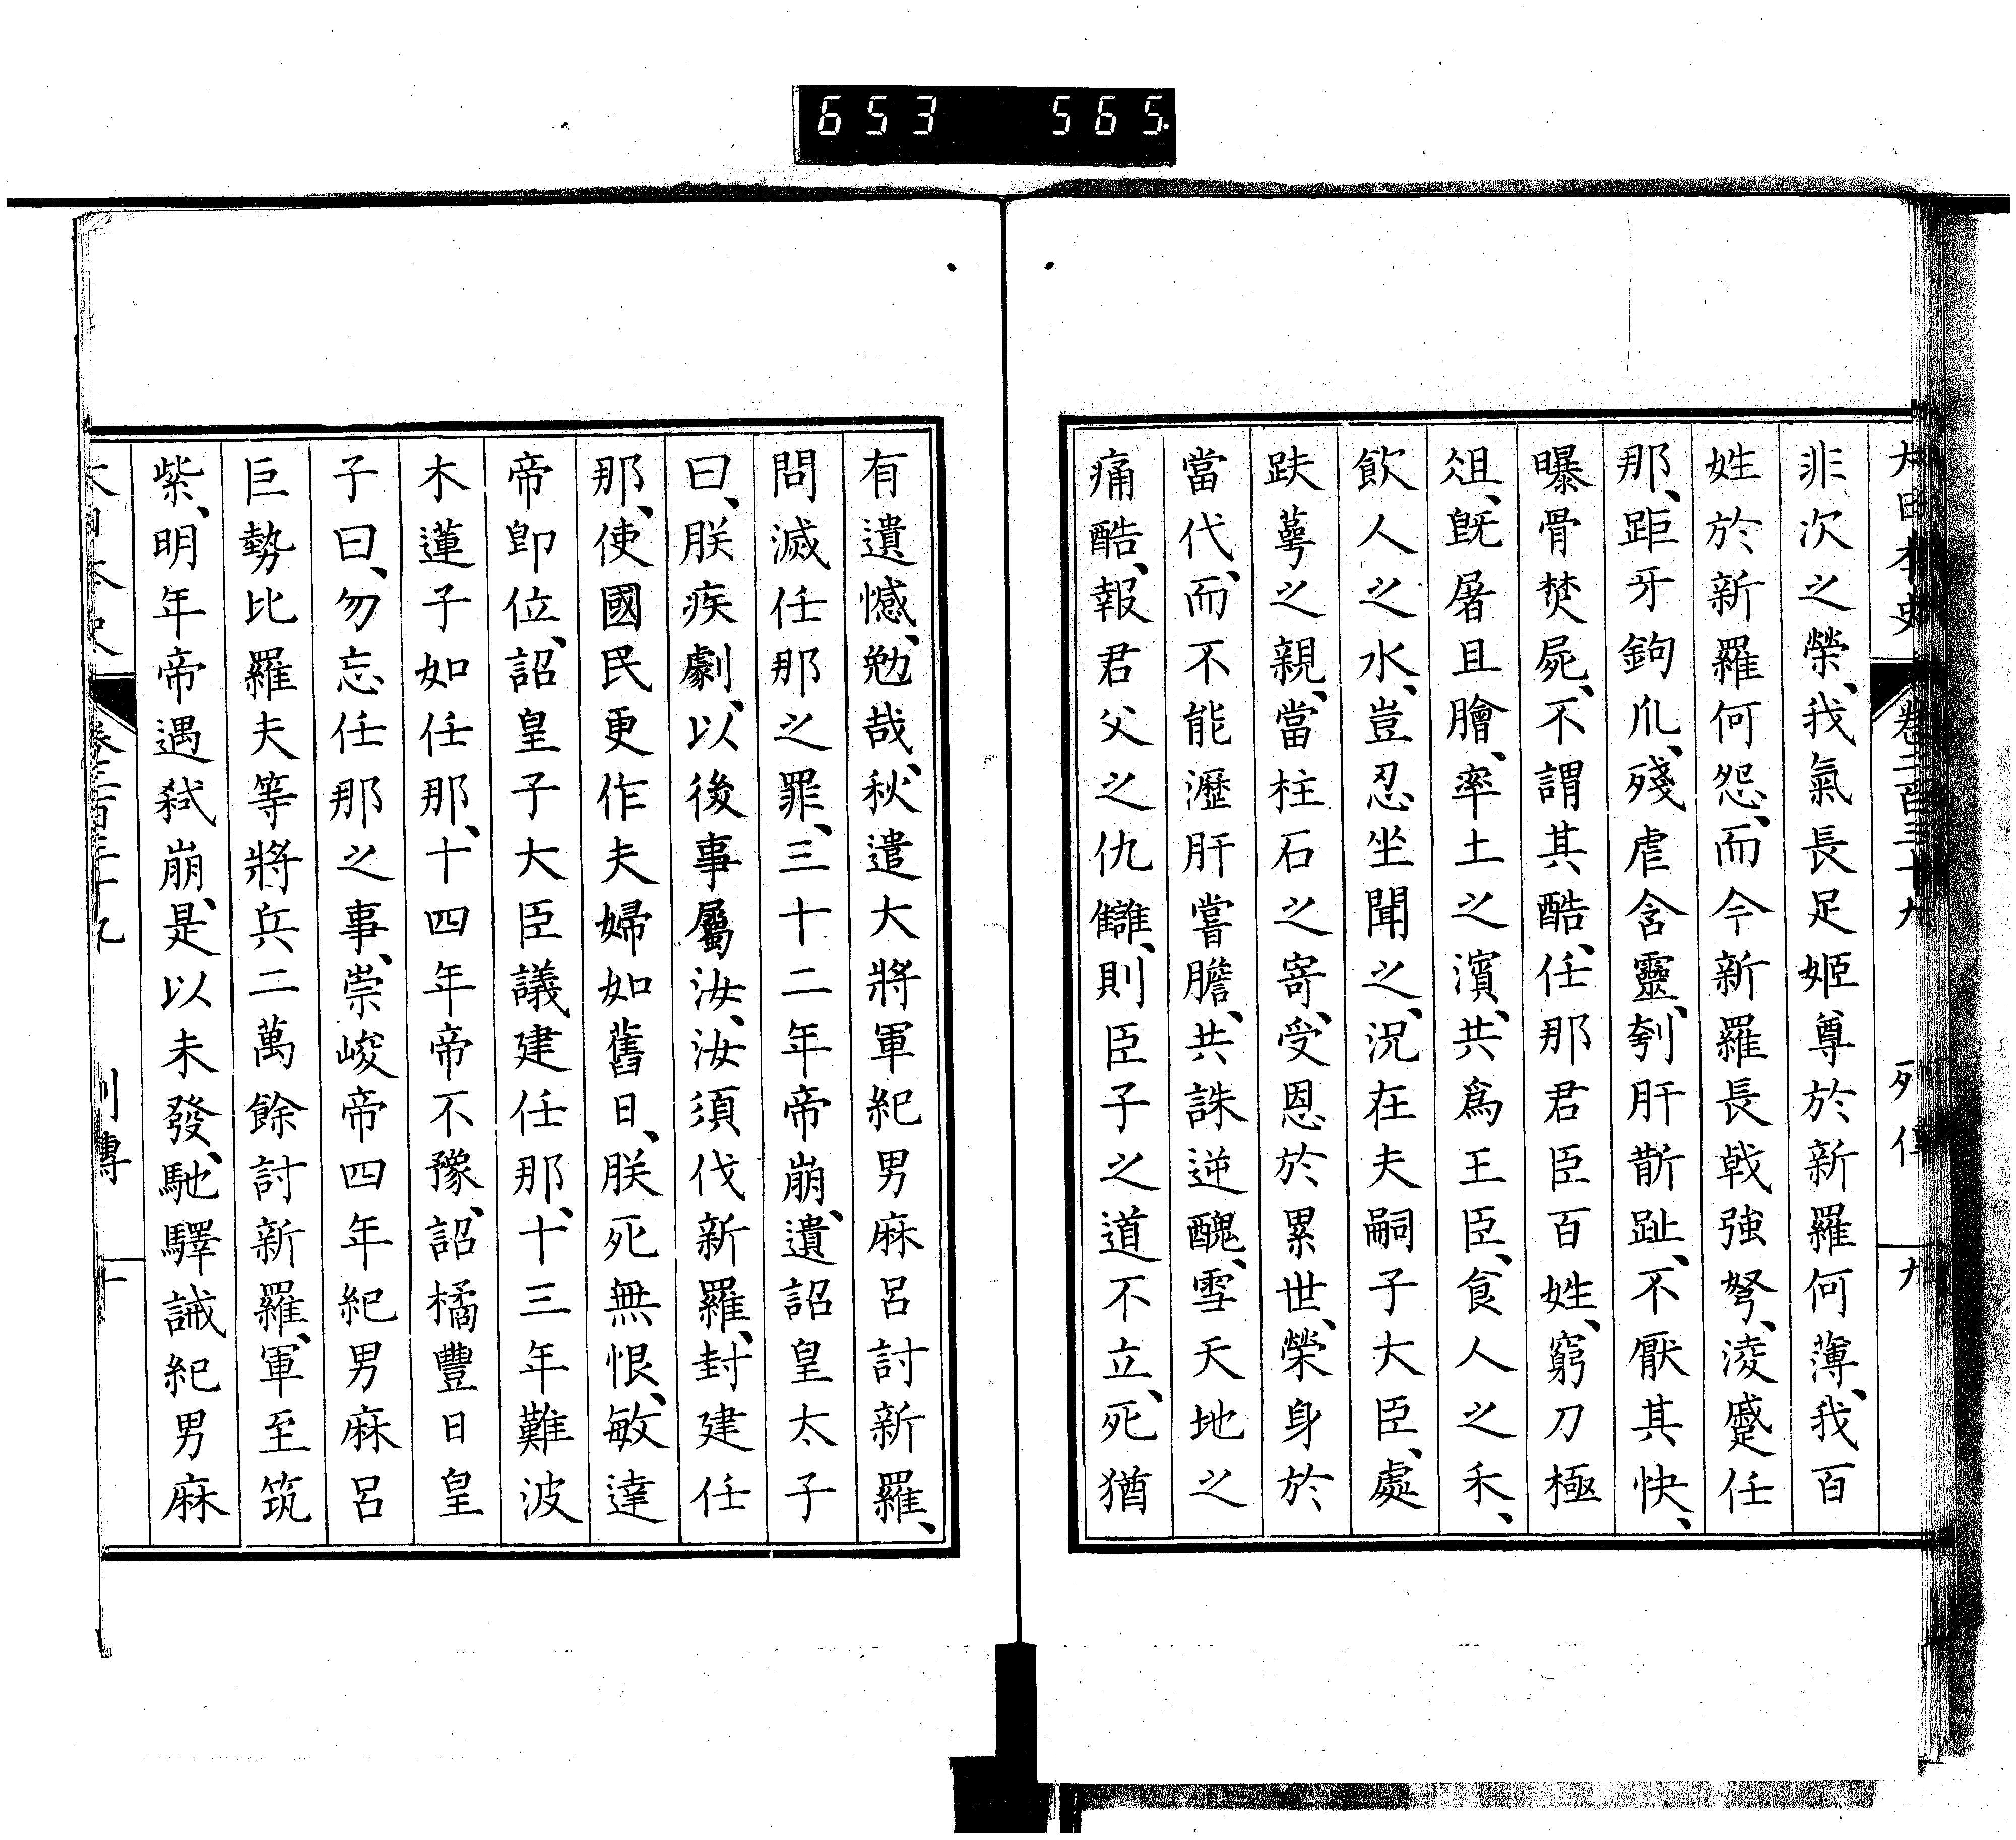 653 565.
大日本史 卷二百三十九 列傳 九
非次之榮、我氣長足姬尊於新羅何薄、我百
姓於新羅何怨、而今新羅長戟強弩、淩蹙任
那、距牙鉤爪、殘虐含靈、刳肝斮趾、不厭其快、
曝骨焚屍、不謂其酷、任那君臣百姓、窮刀極
俎、既屠且膾、率土之濱、共爲王臣、食人之禾、
飲人之水、豈忍坐聞之、況在夫嗣子大臣、處
趺萼之親、當柱石之寄、受恩於累世、榮身於
當代、而不能瀝肝嘗膽、共誅逆醜、雪天地之
痛酷、報君父之仇讎、則臣子之道不立、死猶
有遺憾、勉哉、秋遣大將軍紀男麻呂討新羅、
問滅任那之罪、三十二年帝崩、遺詔皇太子
曰、朕疾劇、以後事屬汝、汝須伐新羅、封建任
那、使國民更作夫婦如舊日、朕死無恨、敏達
帝卽位、詔皇子大臣議建任那、十三年難波
木蓮子如任那、十四年帝不豫、詔橘豐日皇
子曰、勿忘任那之事、崇峻帝四年紀男麻呂
巨勢比羅夫等將兵二萬餘討新羅、軍至筑
紫、明年帝遇弒崩、是以未發、馳驛誡紀男麻
大日本史 卷二百三十九 列傳 十